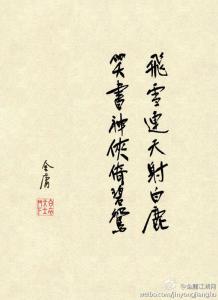 飛雪連天射白鹿
笑書神俠倚碧鴛
金庸
@金庸江湖网
weibo.com/jinyongjianghu